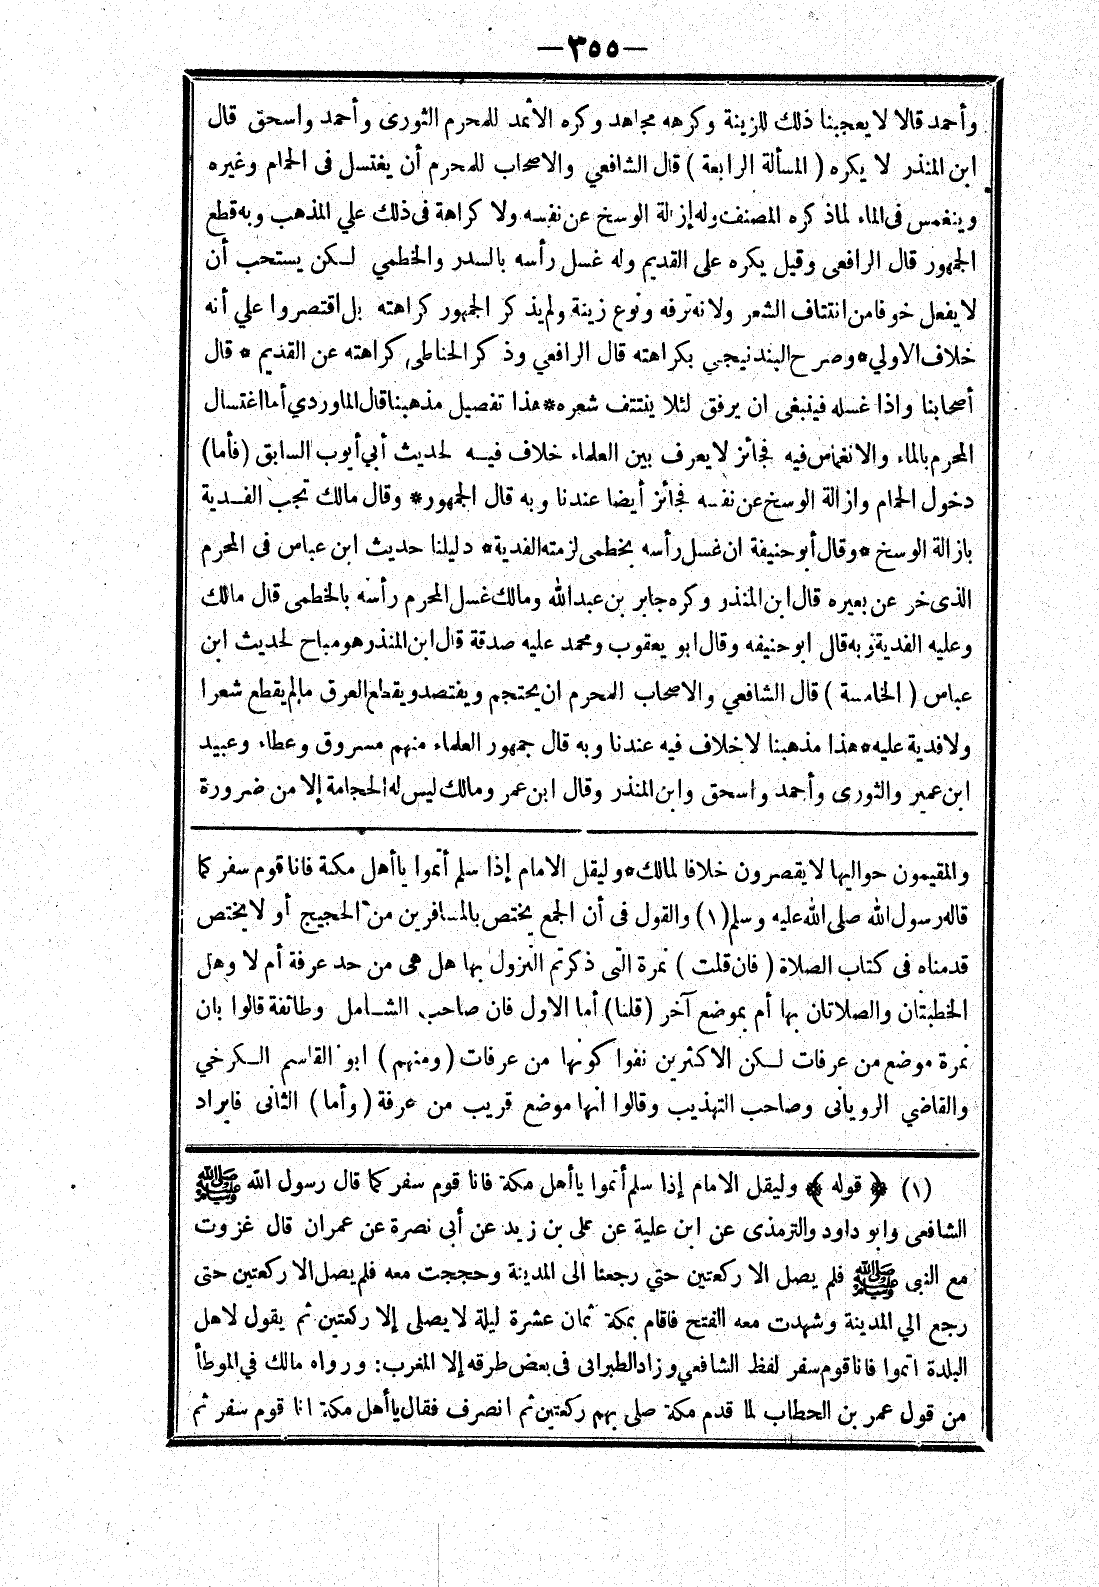 —٣٥٥—
وأحمد قالا لا يعجبنا ذلك للزينة وكرهه مجاهد وكره الأثمد للمحرم الثورى وأحمد واسحق قال
ابن المنذر لا يكره ( المسألة الرابعة ) قال الشافعي والاصحاب للمحرم أن يغتسل فى الحمام وغيره
وينغمس فى الماء لماذ كره المصنف وله إزالة الوسخ عن نفسه ولا كراهة فى ذلك علي المذهب وبه قطع
الجمهور قال الرافعى وقيل يكره على القديم وله غسل رأسه بالسدر والخطمي لـكن يستحب أن
لا يفعل خوفا من انتتاف الشعر ولانه ترفه ونوع زينة ولم يذ كر الجمهور كراهته بل اقتصروا علي أنه
خلاف الاولي * وصرح البندنيجي بكراهته قال الرافعي وذ كر الحناطى كراهته عن القديم * قال
أصحابنا واذا غسله فينبغى ان يرفق لئلا ينتتف شعره * هذا تفصيل مذهبنا قال الماوردي أما اغتسال
المحرم بالماء والانغماس فيه فجائز لا يعرف بين العلماء خلاف فيـه لحديث أبي أيوب السابق (فأما)
دخول الحمام وازالة الوسخ عن نفسه فجائز أيضا عندنا وبه قال الجمهور * وقال مالك تجب الفـدية
بازالة الوسخ * وقال أبو حنيفة ان غسل رأسه بخطمى لزمته الفدية * دليلنا حديث ابن عباس فى المحرم
الذى خر عن بعيره قال ابن المنذر وكره جابر بن عبدالله ومالك غسل المحرم رأسه بالخطمى قال مالك
وعليه الفدية وبه قال ابو حنيفه وقال ابو يعقوب ومحمد عليه صدقة قال ابن المنذر هو مباح لحديث ابن
عباس ( الخامسة ) قال الشافعي والاصحاب للمحرم ان يحتجم ويفتصد ويقطع العرق مالم يقطع شعرا
ولا فدية عليه * هذا مذهبنا لا خلاف فيه عندنا وبه قال جمهور العلماء منهم مسروق وعطاء وعبيد
ابن عمير والثورى وأحمد واسحق وابن المنذر وقال ابن عمر ومالك ليس له الحجامة إلا من ضرورة
والمقيمون حواليها لا يقصرون خلافا لمالك * وليقل الامام إذا سلم أتموا ياأهل مكة فانا قوم سفر كما
قاله رسول الله صلى الله عليه وسلم (١) والقول فى أن الجمع يختص بالمسافرين من الحجيج أو لا يختص
قدمناه فى كتاب الصلاة ( فان قلت ) نمرة التى ذكرتم النزول بها هل هى من حد عرفة أم لا وهل
الخطبتان والصلاتان بها أم بموضع آخر (قلنا) أما الاول فان صاحب الشـامل وطائفة قالوا بان
نمرة موضع من عرفات لـكن الاكثرين نفوا كونها من عرفات ( ومنهم ) ابو القاسم الـكرخي
والقاضي الرويانى وصاحب التهذيب وقالوا انها موضع قريب من عرفة ( وأما ) الثانى فايراد
(١) ﴿ * قوله * ﴾ وليقل الامام إذا سلم أتموا ياأهل مكة فانا قوم سفر كما قال رسول الله ﷺ
الشافعى وابو داود والترمذى عن ابن علية عن على بن زيد عن أبى نصرة عن عمران قال غزوت
مع النبى ﷺ فلم يصل الا ركعتين حتي رجعنا الى المدينة وحججت معه فلم يصل الا ركعتين حتى
رجع الي المدينة وشهدت معه الفتح فاقام بمكة ثمان عشرة ليلة لا يصلى إلا ركعتين ثم يقول لاهل
البلدة اتموا فانا قوم سفر لفظ الشافعي وزاد الطبرانى فى بعض طرقه إلا المغرب: ورواه مالك في الموطأ
من قول عمر بن الحطاب لما قدم مكة صلى بهم ركعتين ثم انصرف فقال ياأهل مكة انا قوم سفر ثم